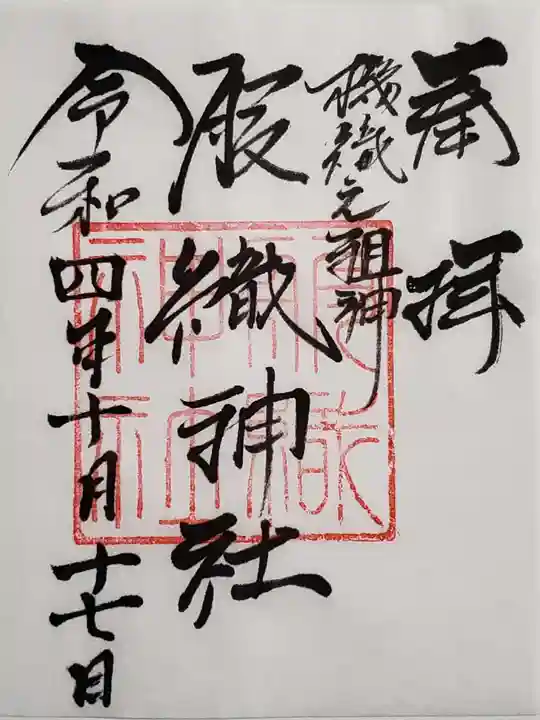 奉拝
機織元祖神
服織神社
令和四年十月十七日